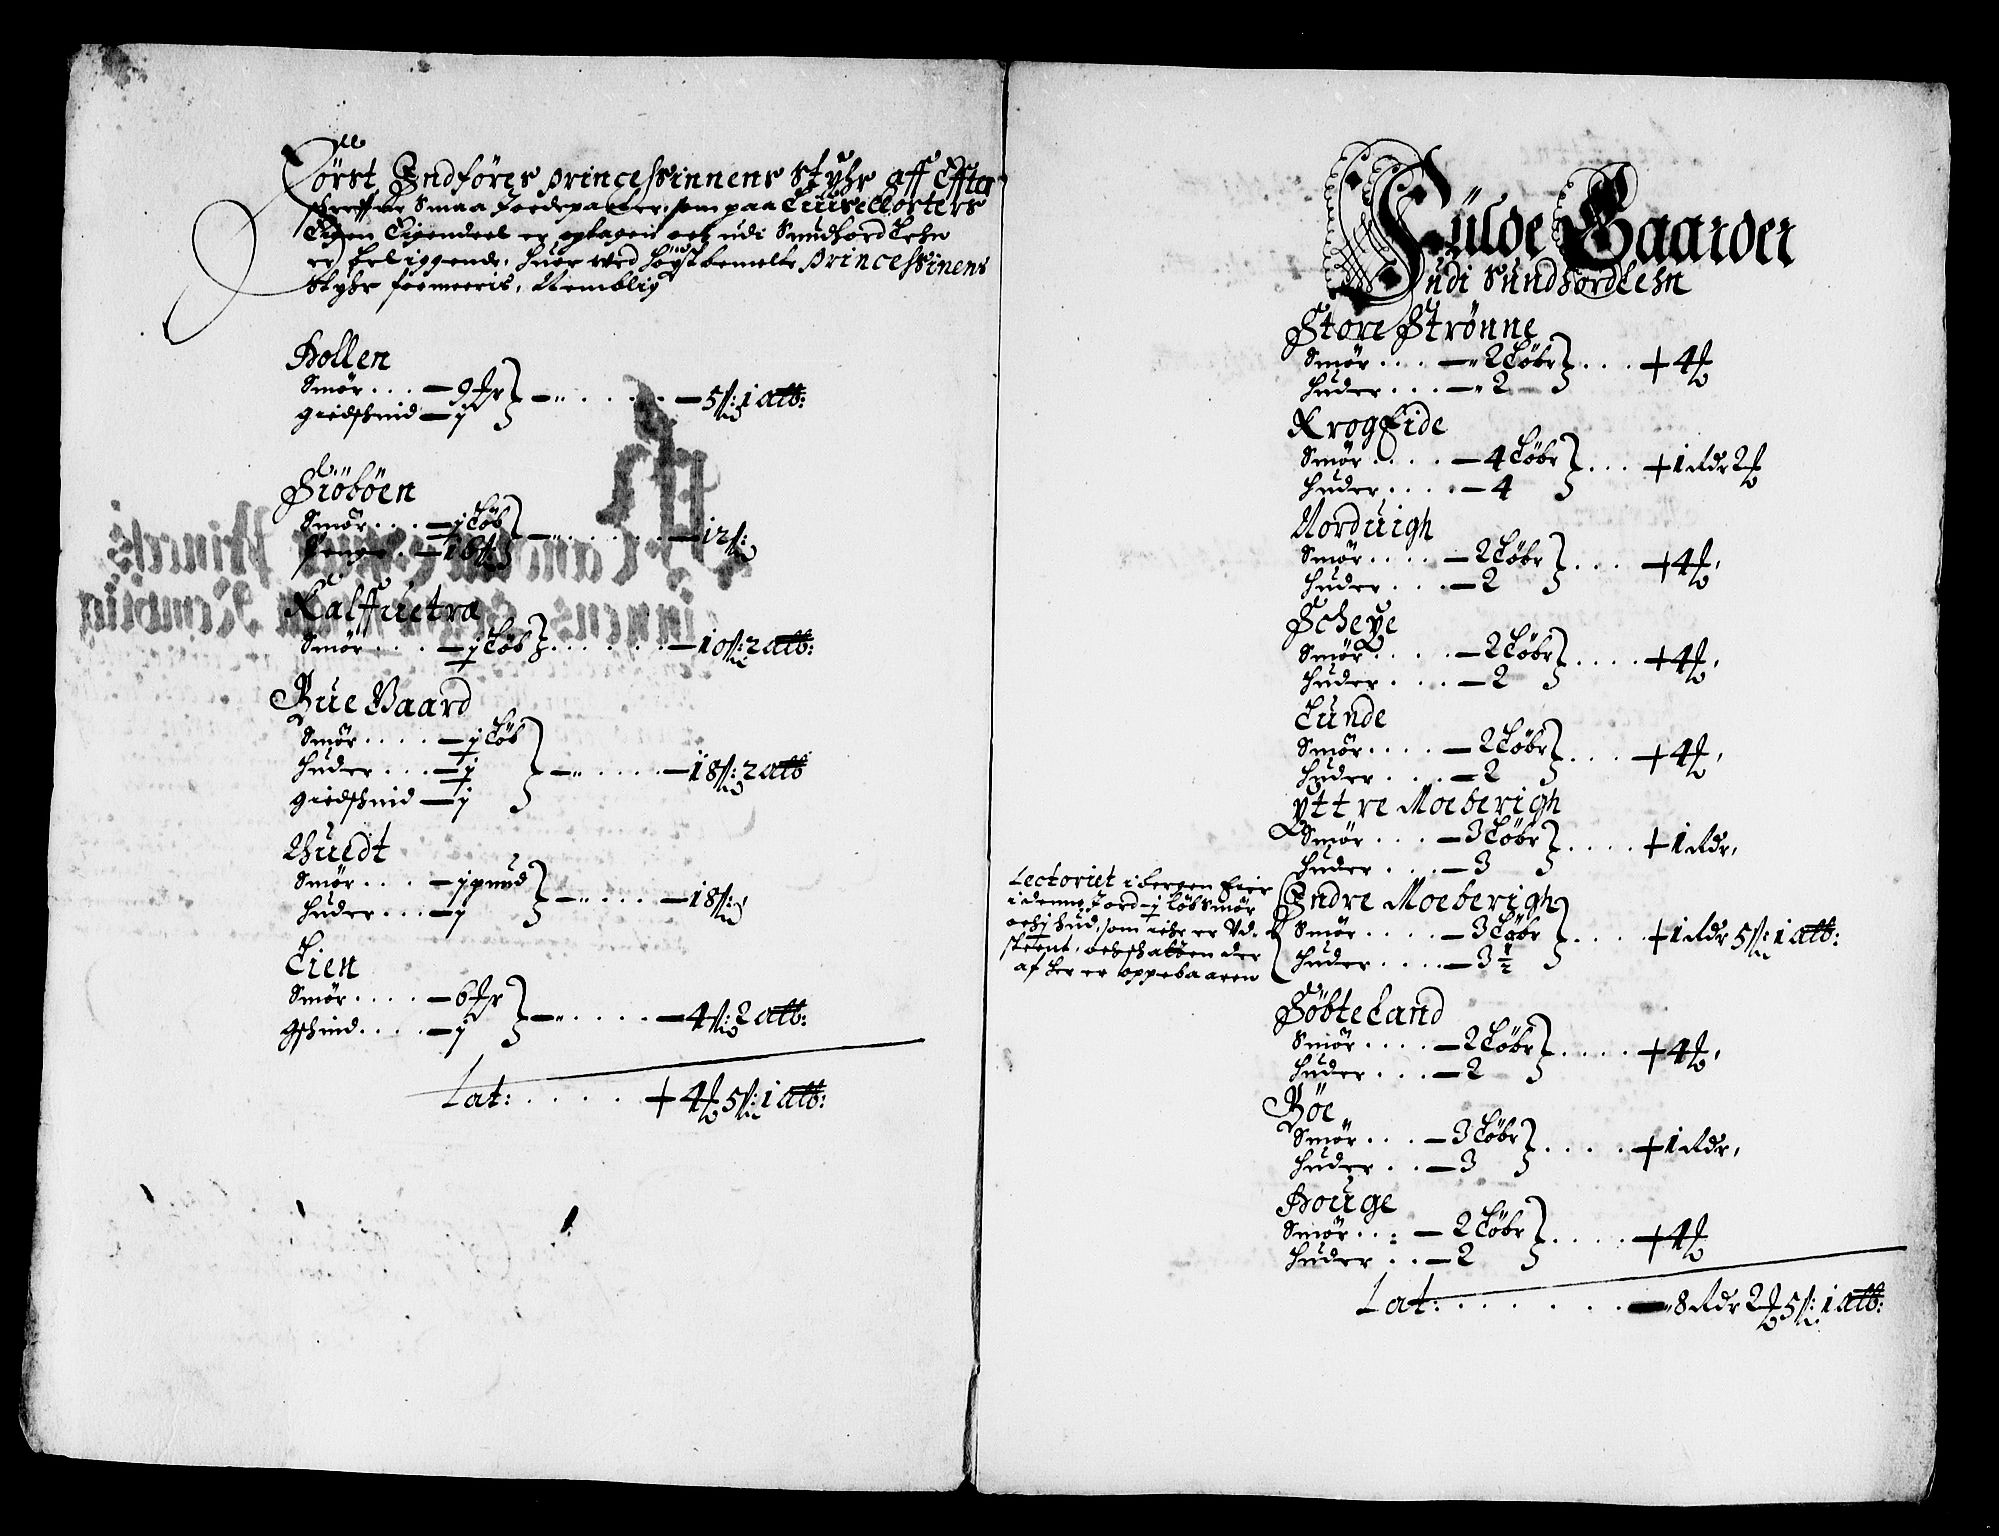 Først Indføres princessinnens Styhr aff Effter
schreffne Smaa Jordeparter, som paa Liuse Closters
Eigen Eigendeel er optagen och udi Sundhord Lehn
er beliggende, huor ved høyst bemelte princessinens
Styhr formeeris, Nemblig
Hollen
Smør . . . — 9 #r
giedschind — j — 5 ß: 1 alb:
Siöböen
Smør . . . — j Løb
Penge . . — 16 ß — 12 ß:
Kalffuetræ
Smør . . . . — j Løb . . . . . . — 10 ß: 2 alb:
Bue Gaard
Smør . . . . — j Løb
huder . . . — j
giedschind — j — 18 ß: 2 alb
Huidt
Smør . . . . — j pund
huder . . . — j — 18 ß:
Lien
Smør . . . . — 6 #r
gschind . . . . — j — 4 ß: 2 alb:
Lat: . . . . . + 4 # 5 ß: 1 alb:
Fulde Gaarder
udi Sundhordlehn
Store Strønne
Smør . . . . — 2 Løbr
huder . . . — 2 . . . + 4 #
Krog Eide
Smør . . . . — 4 Løbr
huder . . . . — 4 . . . + 1 Rdr 2 #
Norduigh
Smør . . . . — 2 Løbr
huder . . . — 2 . . . . + 4 #,
Scheye
Smør . . . . — 2 Løbr
huder . . . — 2 . . . . + 4 #,
Lunde
Smør . . . . — 2 Løbr
huder . . . — 2 . . . + 4 #,
yttre Moeberigh
Smør . . . — 3 Løbr
huder . . . — 3 . . . . + 1 Rdr,
Lectoriet i bergen Eier
i denne Jord j løb smør
och j hud, som icke er Vd.
steent, och schatten der
af her er oppebaaren
Indre Moeberigh
Smør . . . . — 3 Løbr
huder . . . . — 3 ½ . . . . + 1 Rdr 5 ß: 1 alb:
Søbteland
Smør . . . . — 2 Løbr
huder . . . — 2 . . . . + 4 #,
Bøe
Smør . . . — 3 Løbr
huder . . — 3 . . . . + 1 Rdr,
Houge
Smør . . . — 2 Løbr
huder . . — 2 . . . . + 4 #
Lat: . . . . . . — 8 Rdr 2 # 5 ß: 1 alb: